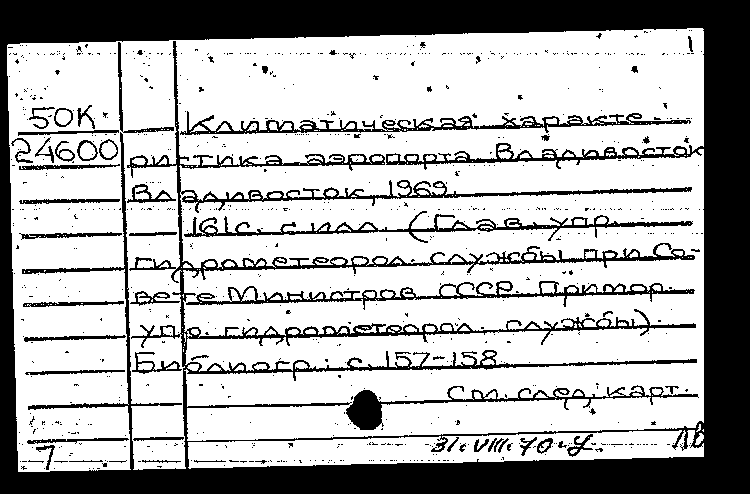 1
50К Климатическая характе-
24600 ристика аэропорта Владивосток
Владивосток, 1969.
161с. с илл. (Глав. упр.
гидрометеорол. службы при Со-
вете Министров СССР. Примор.
упр. гидрометеорол. службы).
Библиогр.: с. 157-158.
См. след. карт.
7 31.VIII.70.